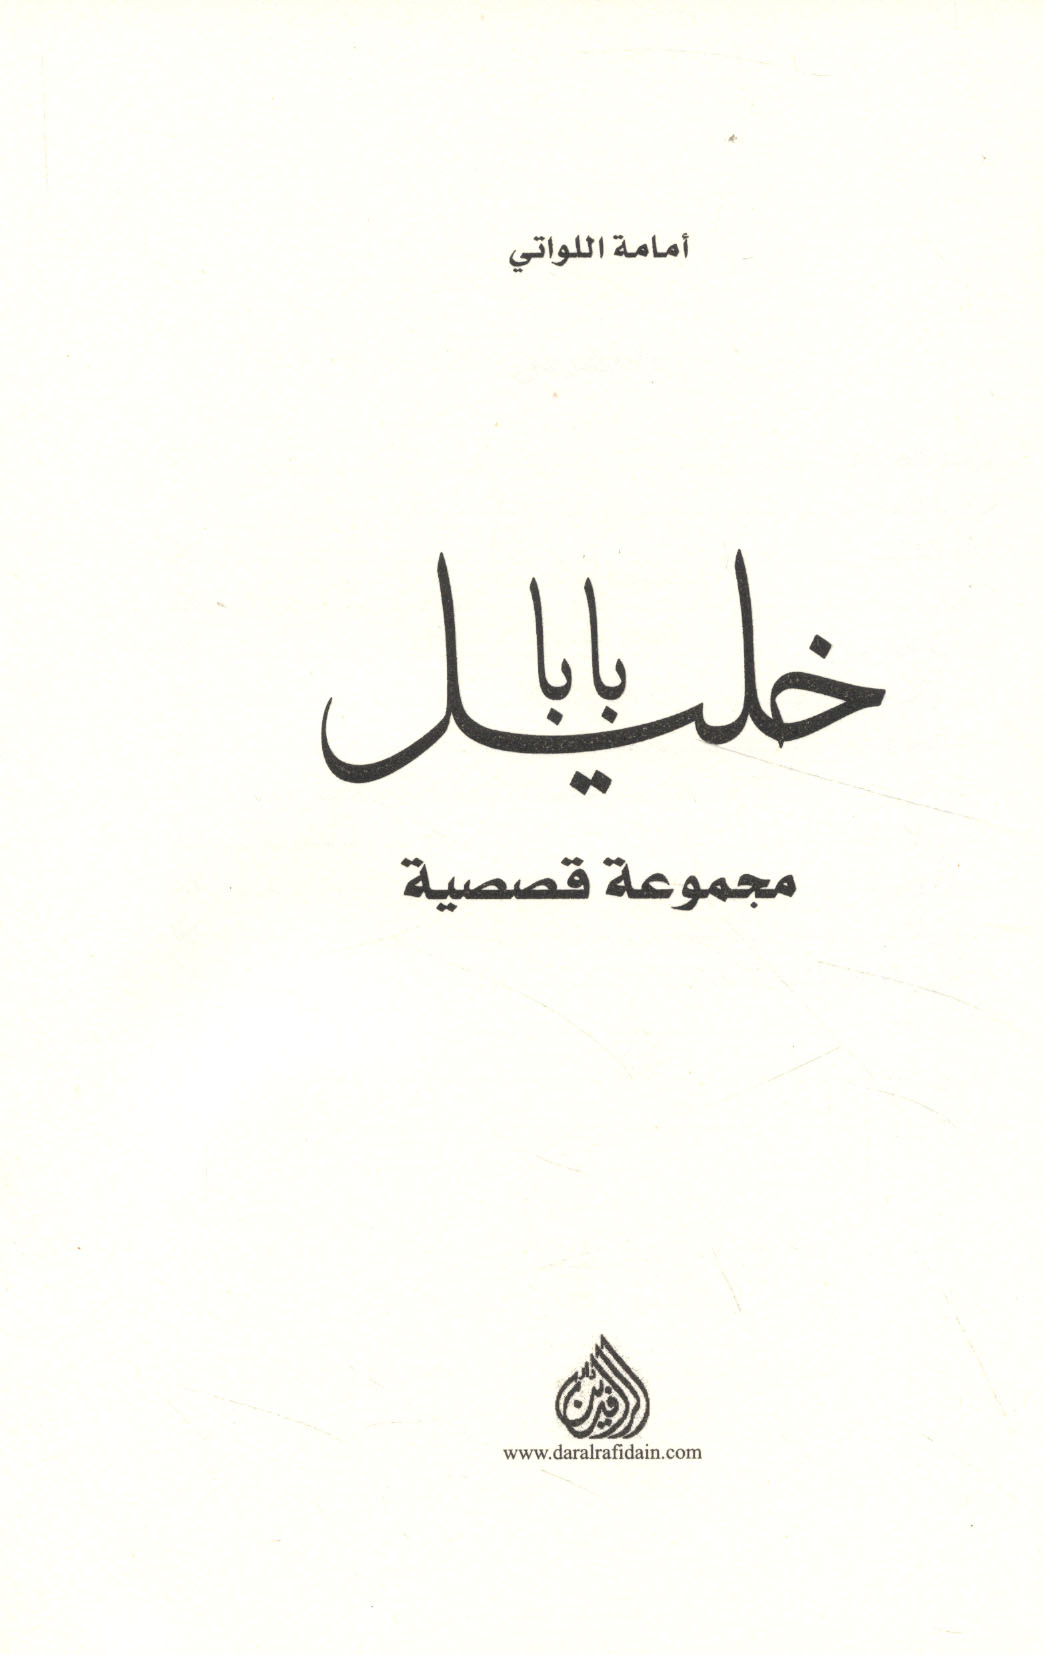 أمامة اللواتي
بابا
خليل
مجموعة قصصية
دار الرافدين
www.daralrafidain.com